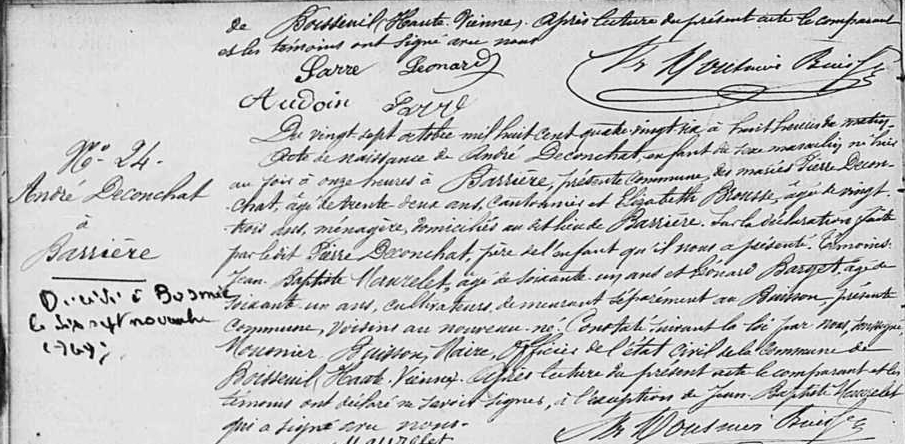 de Boisseuil (Haute-Vienne). Après lecture du présent acte le comparant
et les témoins ont signé avec nous
Sarre Leonard
Audoin Sarre
Du vingt sept octobre mil huit cent quatre-vingt-six à huit heures du matin,
Acte de naissance de André Deconchat, enfant de sexe masculin, né hier
au soir à onze heures à Barrière, présente commune, des mariés Pierre Decon-
chat, âgé de trente deux ans, cantonnier et Elizabeth Brousse, âgée de vingt
trois ans, ménagère, domiciliés au dit lieu de Barrière. Sur la déclaration faite
par le dit Pierre Deconchat, père de l'enfant qu'il nous a présenté. Témoins:
Jean-Baptiste Maurelet, âgé de soixante-un ans et Léonard Barget, âgé de
soixante un ans, cultivateurs, demeurant séparément au Buisson, présente
commune, voisins au nouveau-né. Constaté suivant la loi par nous, soussigné,
Mousnier Buisson, Maire, Officier de l'état civil de la commune de
Boisseuil (Haute-Vienne). Après lecture du présent acte le comparant et les
témoins ont déclaré ne savoir signer, à l'exception de Jean-Baptiste Maurelet
qui a signé avec nous.
Maurelet
No. 24.
André Deconchat
à
Barrière
Décédé à Bosmie
le dix sept novembre